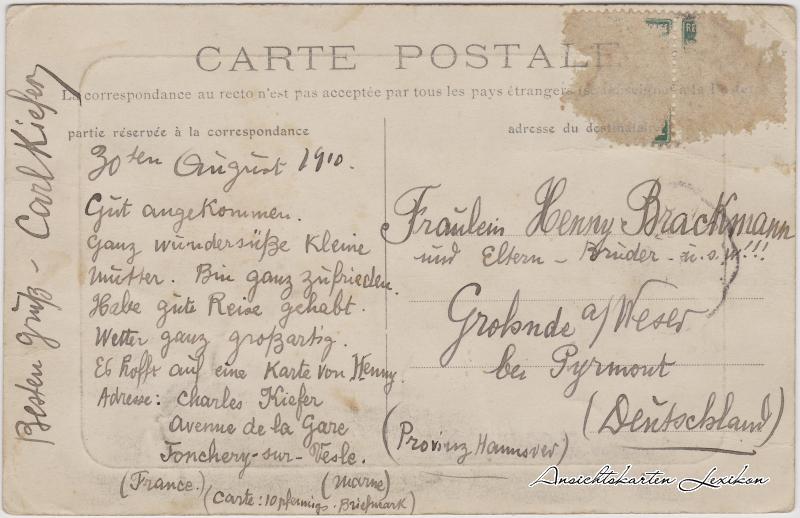 CARTE POSTALE
La correspondance au recto n'est pas acceptée par tous les pays étrangers (se renseigner à la Poste)
partie réservée à la correspondance
adresse du destinataire
30ten August 1910.
Gut angekommen.
Ganz wundersüße kleine
Mutter. Bin ganz zufrieden.
Habe gute Reise gehabt.
Wetter ganz großartig.
Es hofft auf eine Karte von Henny.
Adresse: Charles Kiefer
Avenue de la Gare
Jonchery-sur-Vesle.
(France.) (Marne)
(Carte: 10 pfennigs-Briefmark)
Besten Gruß - Carl Kiefer
Fräulein Henny Brackmann
und Eltern - Bruder - u.s.w!!!
Grohnde a/Weser
bei Pyrmont
(Deutschland)
(Provinz Hannover)
Ansichtskarten Lexikon